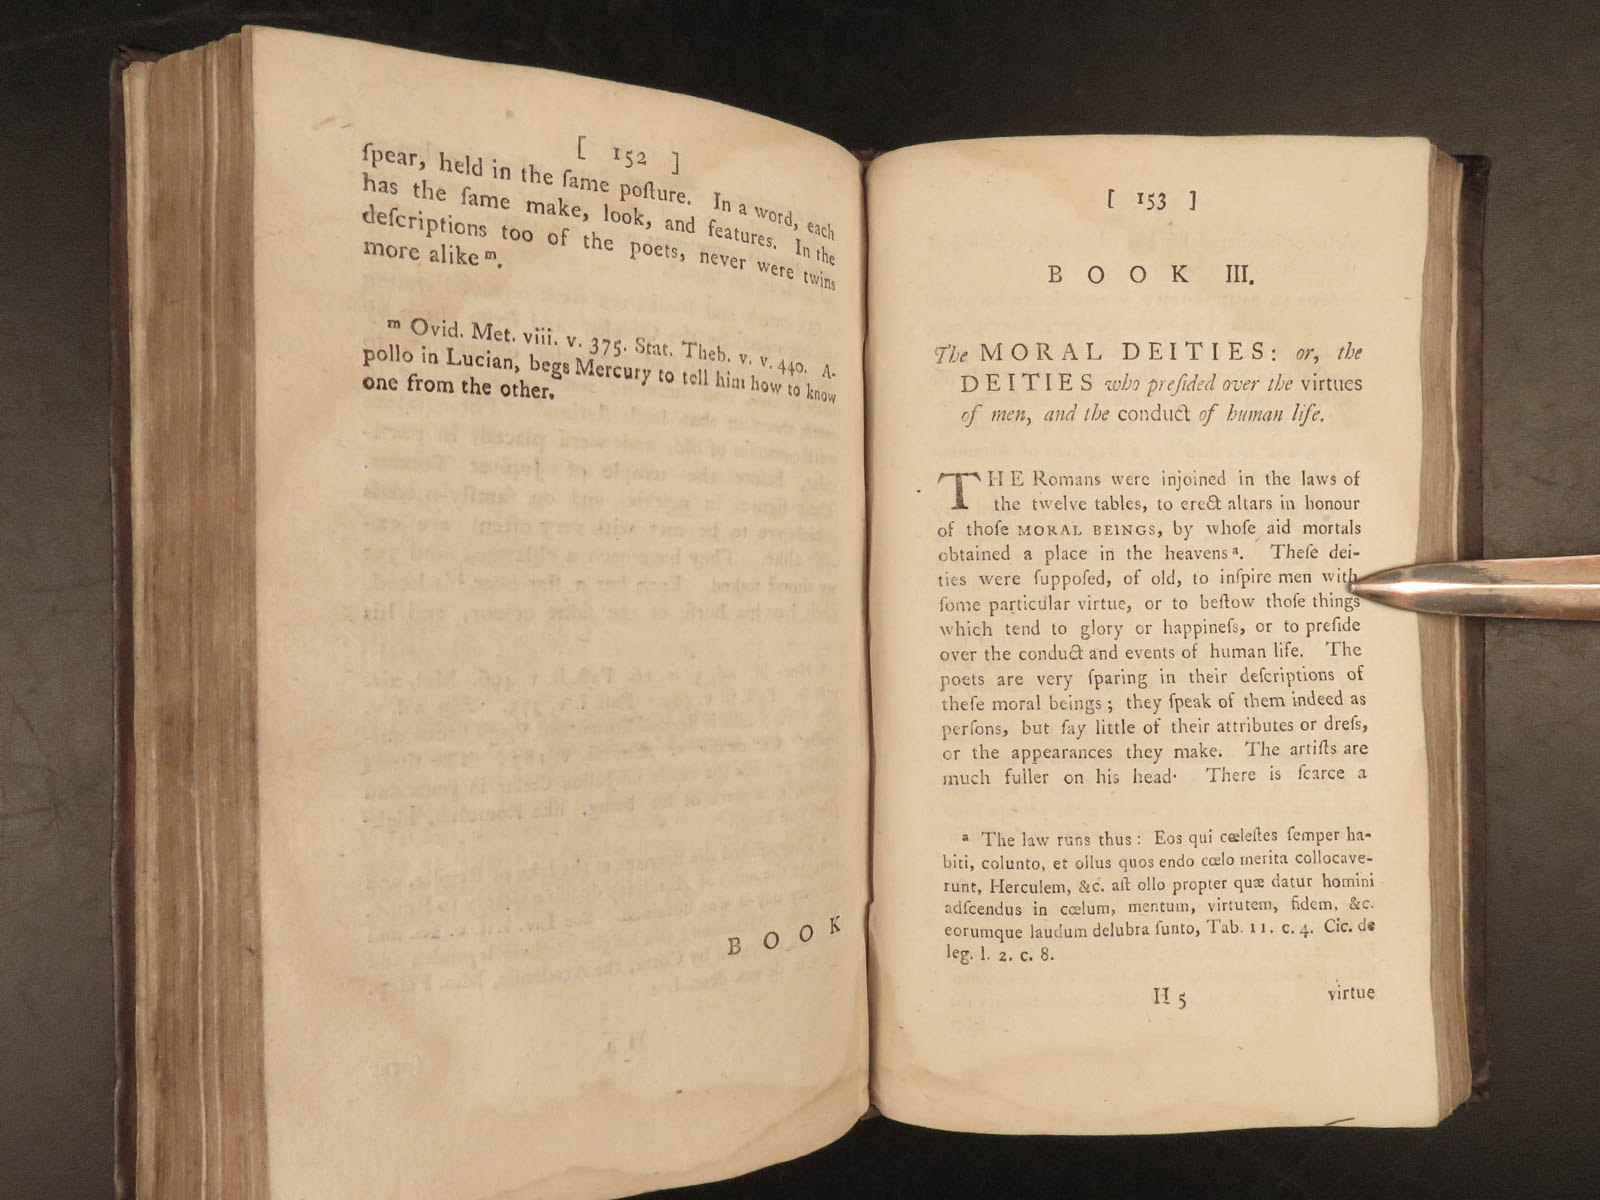 [ 152 ]
ſpear, held in the ſame poſture. In a word, each
has the ſame make, look, and features. In the
deſcriptions too of the poets, never were twins
more alike ᵐ.
ᵐ Ovid. Met. viii. v. 375. Stat. Theb. v. v. 440. A-
pollo in Lucian, begs Mercury to tell him how to know
one from the other.
BOOK
[ 153 ]
BOOK III.
The MORAL DEITIES: or, the
DEITIES who preſided over the virtues
of men, and the conduct of human life.
THE Romans were injoined in the laws of
the twelve tables, to erect altars in honour
of thoſe MORAL BEINGS, by whoſe aid mortals
obtained a place in the heavens ᵃ. Theſe dei-
ties were ſuppoſed, of old, to inſpire men with
ſome particular virtue, or to beſtow thoſe things
which tend to glory or happineſs, or to preſide
over the conduct and events of human life. The
poets are very ſparing in their deſcriptions of
theſe moral beings; they ſpeak of them indeed as
perſons, but ſay little of their attributes or dreſs,
or the appearances they make. The artiſts are
much fuller on his head· There is ſcarce a
ᵃ The law runs thus: Eos qui cœleſtes ſemper ha-
biti, colunto, et ollus quos endo cœlo merita collocave-
runt, Herculem, &c. aſt ollo propter quæ datur homini
adſcendus in cœlum, mentum, virtutem, fidem, &c.
eorumque laudum delubra ſunto, Tab. 11. c. 4. Cic. de
leg. l. 2. c. 8.
H 5 virtue